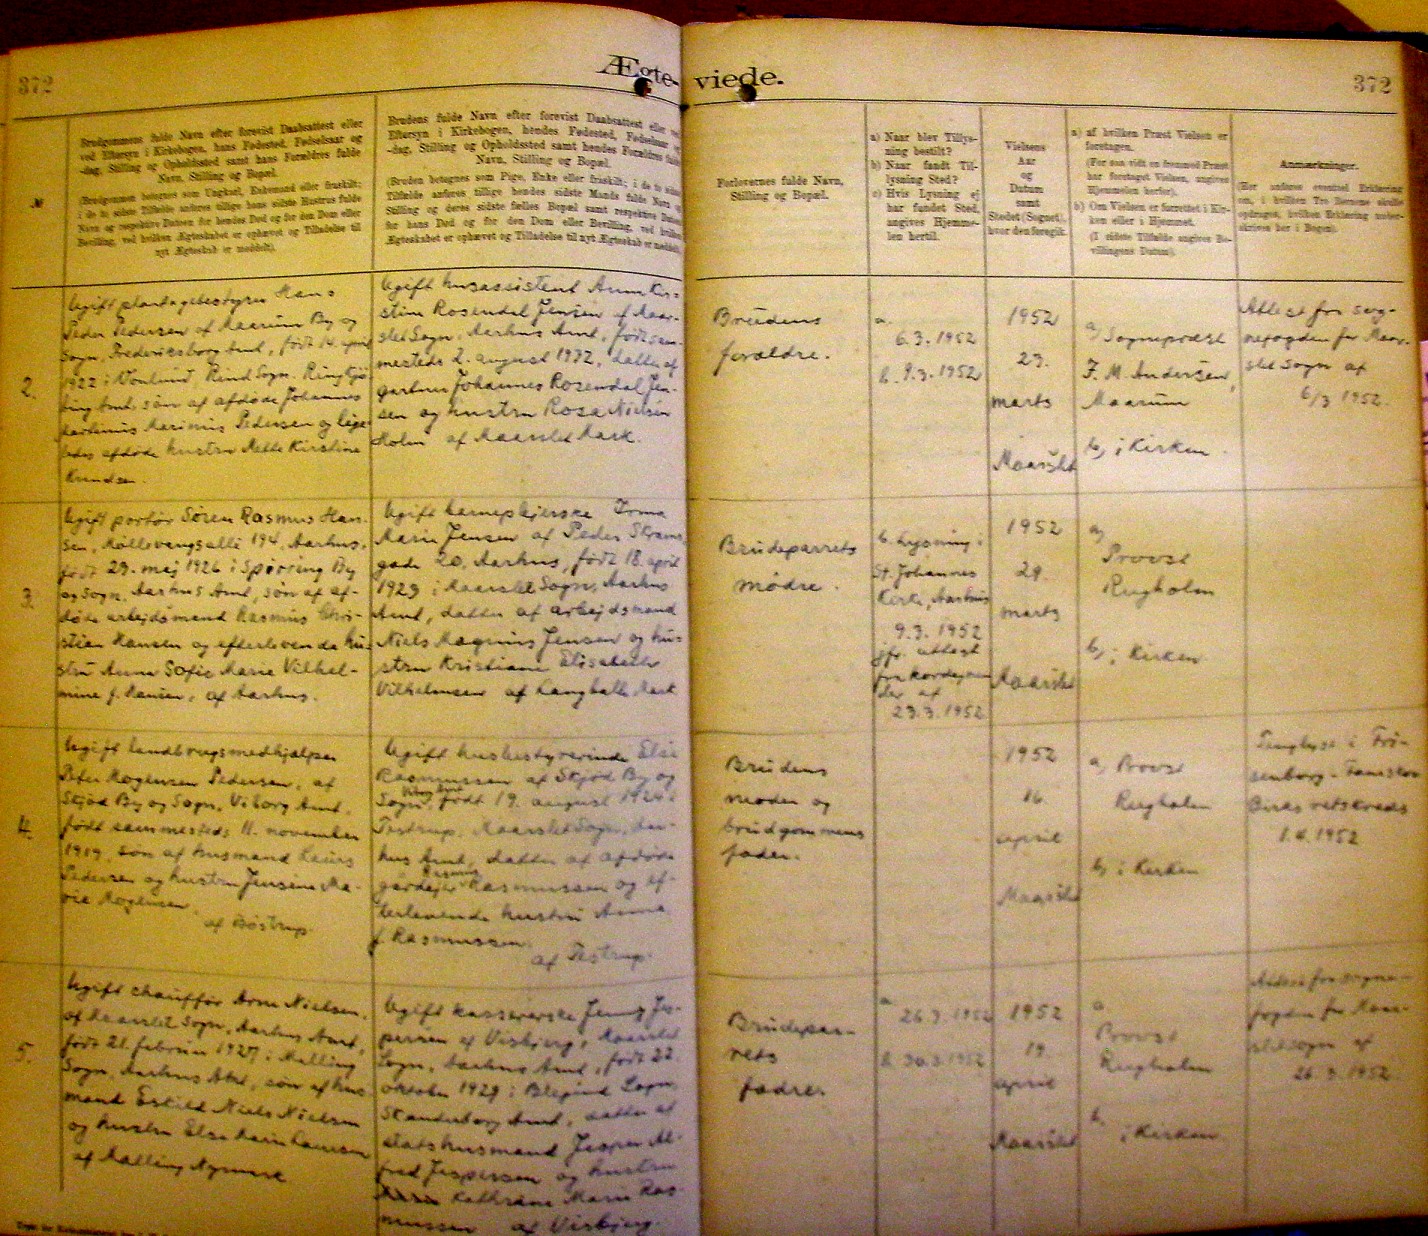 372
Ægte-
viede.
372
№
Brudgommens fulde Navn efter forevist Daabsattest eller
ved Eftersyn i Kirkebogen, hans Fødested, Fødselsaar og
-dag, Stilling og Opholdssted samt hans Forældres fulde
Navn, Stilling og Bopæl.
(Brudgommen betegnes som Ungkarl, Enkemand eller fraskilt;
i de to sidste Tilfælde anføres tillige hans sidste Hustrus fulde
Navn og respektive Datoen for hendes Død og for den Dom eller
Bevilling, ved hvilken Ægteskabet er ophævet og Tilladelse til
nyt Ægteskab er meddelt).
Brudens fulde Navn efter forevist Daabsattest eller ved
Eftersyn i Kirkebogen, hendes Fødested, Fødselsaar og
-dag, Stilling og Opholdssted samt hendes Forældres fulde
Navn, Stilling og Bopæl.
(Bruden betegnes som Pige, Enke eller fraskilt; i de to sidste
Tilfælde anføres tillige hendes sidste Mands fulde Navn og
Stilling og deres sidste fælles Bopæl samt respektive Datoen
for hans Død og for den Dom eller Bevilling, ved hvilken
Ægteskabet er ophævet og Tilladelse til nyt Ægteskab er meddelt).
Forlovernes fulde Navn,
Stilling og Bopæl.
a) Naar blev Tillys-
ning bestilt?
b) Naar fandt Til-
lysning Sted?
c) Hvis Lysning ej
har fundet Sted,
angives Hjemme-
len hertil.
Vielsens
Aar
og
Datum
samt
Stedet (Sognet),
hvor den foregik.
a) af hvilken Præst Vielsen er
foretagen.
(For saa vidt en fremmed Præst
har foretaget Vielsen, angives
Hjemmelen herfor).
b) Om Vielsen er forrettet i Kir-
ken eller i Hjemmet.
(I sidste Tilfælde angives Be-
villingens Datum).
Anmærkninger.
(Her anføres eventuel Erklæring
om, i hvilken Tro Børnene skulle
opdrages, hvilken Erklæring under-
skrives her i Bogen).
2.
Ugift plantagebestyrer Hans
Peder Pedersen af Maarum By og
Sogn, Frederiksborg Amt, født 14. april
1922 i Vonlund, Rind Sogn, Ringkjø-
bing Amt, søn af afdøde Johannes
Marinus Pedersen og lige-
ledes afdøde hustru Mette Kirstine
Knudsen.
Ugift husassistent Anna Kir-
stine Rosendal Jensen af Maar-
slet Sogn, Aarhus Amt, født sam-
mesteds 2. august 1922, datter af
gartner Johannes Rosendal Jen-
sen og hustru Rosa Nielsen
Holm af Maarslet Mark.
Brudens
forældre.
a.
6.3.1952
b. 9.3.1952
1952
23.
marts
Maarslet
a) Sognepræst
F. M. Andersen,
Maarum
b) i Kirken.
Attest fra sog-
nefogden for Maar-
slet sogn af
6/3 1952.
3.
Ugift portør Søren Rasmus Han-
sen, Møllevangsallé 194, Aarhus,
født 29. maj 1926 i Spørring By
og Sogn, Aarhus Amt, søn af af-
døde arbejdsmand Rasmus Chri-
stian Hansen og efterlevende hu-
stru Anna Sofie Marie Vilhel-
mine f. Hansen, af Aarhus.
Ugift barneplejerske Irma
Marie Jensen af Peder Skrams-
gade 20, Aarhus, født 18. april
1929 i Maarslet Sogn, Aarhus
Amt, datter af arbejdsmand
Niels Magnus Jensen og hu-
stru Kristiane Elisabeth
Vilhelmsen af Langballe Mark
Brudeparrets
mødre.
b. Lysning i
St. Johannes
Kirke, Aarhus
9.3.1952
jfr. attest
fra kordegnen
der af
23.3.1952
1952
29.
marts
Maarslet
a)
Provst
Rugholm
b) i Kirken
4.
Ugift landbrugsmedhjælper
Peter Mogensen Pedersen, af
Skjød By og Sogn, Viborg Amt,
født sammesteds 11. november
1919, søn af husmand Laurs
Pedersen og hustru Jensine Ma-
rie Mogensen
af Bøstrup.
Ugift husbestyrerinde Else
Rasmussen af Skjød By og
Sogn, Viborg Amt, født 19. august 1924 i
Testrup, Maarslet Sogn, Aar-
hus Amt, datter af afdøde
gårdejer Rasmus Rasmussen og ef-
terlevende hustru Anna
f. Rasmussen.
af Testrup.
Brudens
moder og
brudgommens
fader.
1952
16.
april
Maarslet
a) Provst
Rugholm
b) i Kirken
Tinglyst i Frij-
senborg-Faurskov
Birks retskreds
1.4.1952
5.
Ugift chauffør Arne Nielsen,
af Maarslet Sogn, Aarhus Amt,
født 21. februar 1927 i Malling
Sogn, Aarhus Amt, søn af hus-
mand Eskild Niels Nielsen
og hustru Else Marie Laursen
af Malling
Ugift kassererske Jenny Jes-
persen af Visbjerg, Maarslet
Sogn, Aarhus Amt, født 22.
oktober 1929 i Blegind Sogn,
Skanderborg Amt, datter af
statshusmand Jesper Al-
fred Jespersen og hustru
Kathrine Marie Ras-
mussen af Visbjerg.
Brudepar-
rets
fædre.
a.
26.3.1952
b. 30.3.1952
1952
19.
april
Maarslet
a.
Provst
Rugholm
b.
i Kirken
Attest fra sogne-
fogden for Maar-
slet sogn af
26.3.1952